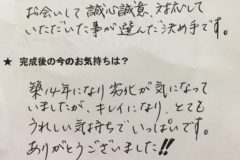 お会いして誠心誠意、対応して
いただいた事が選んだ決め手です。
★ 完成後の今のお気持ちは？
築14年になり劣化が気になって
いましたが、キレイになり、とても
うれしい気持ちでいっぱいです。
ありがとうございました!!